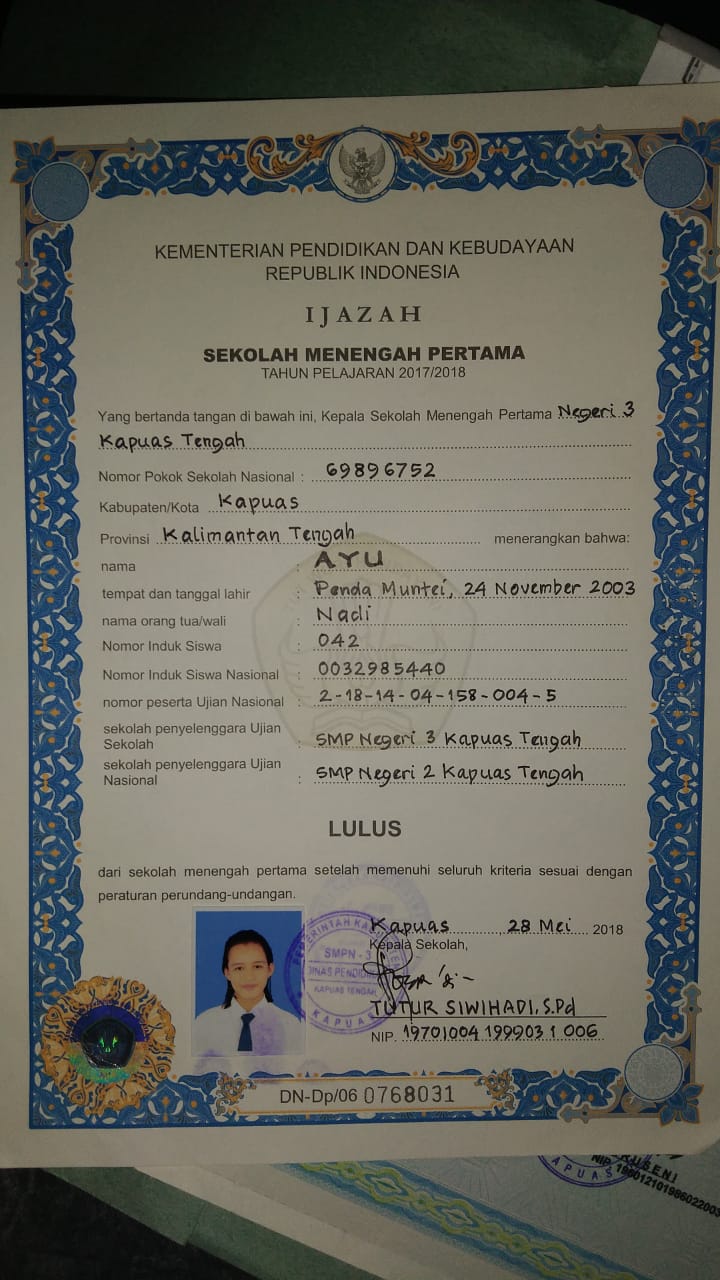 KEMENTERIAN PENDIDIKAN DAN KEBUDAYAAN
REPUBLIK INDONESIA
IJAZAH
SEKOLAH MENENGAH PERTAMA
TAHUN PELAJARAN 2017/2018
Yang bertanda tangan di bawah ini, Kepala Sekolah Menengah Pertama Negeri 3
Kapuas Tengah
Nomor Pokok Sekolah Nasional : 69896752
Kabupaten/Kota Kapuas
Provinsi Kalimantan Tengah menerangkan bahwa:
nama : AYU
tempat dan tanggal lahir : Penda Muntei, 24 November 2003
nama orang tua/wali : Nadi
Nomor Induk Siswa : 042
Nomor Induk Siswa Nasional : 0032985440
nomor peserta Ujian Nasional : 2-18-14-04-158-004-5
sekolah penyelenggara Ujian
Sekolah : SMP Negeri 3 Kapuas Tengah
sekolah penyelenggara Ujian
Nasional : SMP Negeri 2 Kapuas Tengah
LULUS
dari sekolah menengah pertama setelah memenuhi seluruh kriteria sesuai dengan
peraturan perundang-undangan.
Kapuas, 28 Mei 2018
Kepala Sekolah,
SMPN - 3
KAPUAS TENGAH
KAPUAS
TUTUR SIWIHADI, S.Pd
NIP. 19701004 199903 1 006
DN-Dp/06 0768031